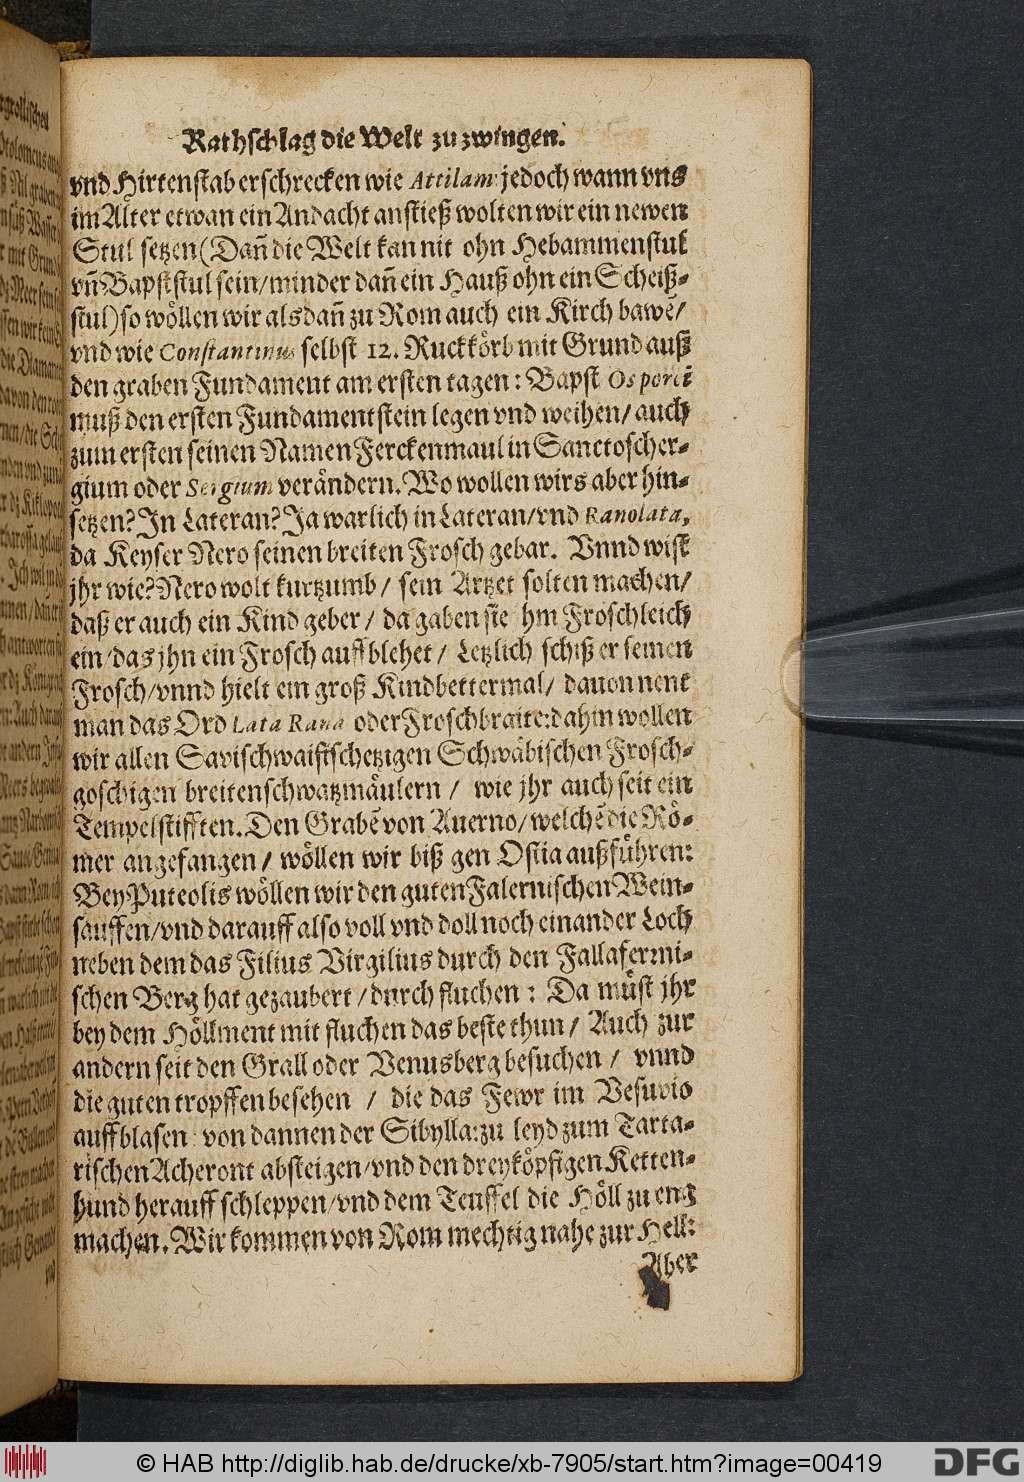 Rathschlag die Welt zu zwingen.
vnd Hirtenstab erschrecken wie Attilam jedoch wann vns
im Alter etwan ein Andacht anstieß wolten wir ein newen
Stul setzen (Dañ die Welt kan nit ohn Hebammenstul
vñ Bapststul sein / minder dañ ein Hauß ohn ein Scheiß-
stul) so wöllen wir alsdañ zu Rom auch ein Kirch bawẽ /
vnd wie Constantinus selbst 12. Ruckkörb mit Grund auß
den graben Fundament am ersten tagen: Bapst Os porci
muß den ersten Fundamentstein legen vnd weihen / auch
zum ersten seinen Namen Ferckenmaul in Sanctoscher-
gium oder Sergium verändern. Wo wollen wirs aber hin-
setzen? In Lateran? Ja warlich in Lateran / vnd Ranolata,
da Keyser Nero seinen breiten Frosch gebar. Vnnd wißt
jhr wie? Nero wolt kurtzumb / sein Artzet solten machen /
daß er auch ein Kind geber / da gaben sie jhm Froschleich
ein / das jhn ein Frosch auffblehet / Letzlich schiß er seinen
Frosch / vnnd hielt ein groß Kindbettermal / dauon nent
man das Ord Lata Rana oder Froschbraite: dahin wollen
wir allen Savischwaifftschetzigen Schwäbischen Frosch-
goschigen breitenschwatzmäulern / wie jhr auch seit ein
Tempel stifften. Den Grabẽ von Auerno / welchẽ die Rö-
mer angefangen / wöllen wir biß gen Ostia außführen:
Bey Puteolis wöllen wir den guten Falernischen Wein-
sauffen / vnd darauff also voll vnd doll noch einander Loch
neben dem das Filius Virgilius durch den Fallafermi-
schen Berg hat gezaubert / durch fluchen: Da müst jhr
bey dem Höllment mit fluchen das beste thun / Auch zur
andern seit den Grall oder Venusberg besuchen / vnnd
die guten tropffen besehen / die das Fewr im Vesuvio
auffblasen: von dannen der Sibylla: zu leyd zum Tarta-
rischen Acheront absteigen / vnd den dreyköpfigen Ketten-
hund herauff schleppen / vnd dem Teuffel die Höll zu eng
machen. Wir kommen von Rom mechtig nahe zur Hell:
Aber
© HAB http://diglib.hab.de/drucke/xb-7905/start.htm?image=00419
DFG